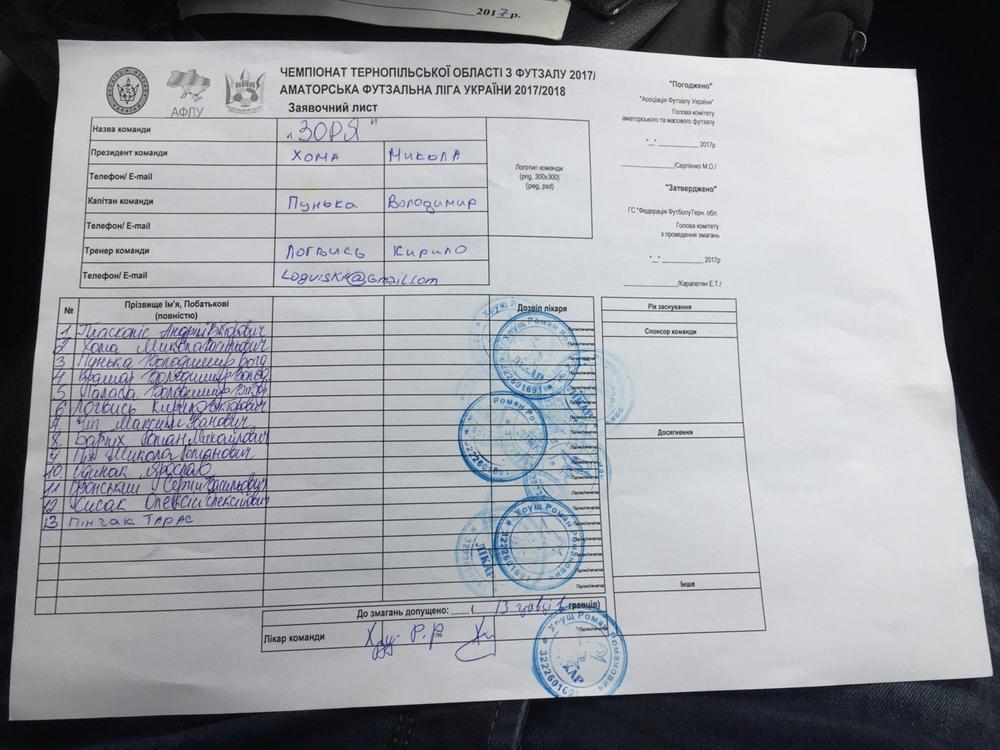 2017р.
ЧЕМПІОНАТ ТЕРНОПІЛЬСЬКОЇ ОБЛАСТІ З ФУТЗАЛУ 2017/
АМАТОРСЬКА ФУТЗАЛЬНА ЛІГА УКРАЇНИ 2017/2018
Заявочний лист
АФЛУ
"Погоджено"
"Асоціація Футзалу України"
Голова комітету
аматорського та масового футзалу
"__" __________ 2017р
__________/Сергієнко М.О./
"Затверджено"
ГС "Федерація ФутболуТерн. обл.
Голова комітету
з проведення змагань
"__" __________ 2017р
__________/Карапетян Е.Т./
Назва команди "ЗОРЯ"
Президент команди Хома Микола
Телефон/ E-mail
Капітан команди Пунька Володимир
Телефон/ E-mail
Тренер команди Логвись Кирило
Телефон/ E-mail Logviski@Gmail.com
Логотип команди
(png, 300x300)
(jpeg, psd)
№ Прізвище Ім'я, Побатькові
(повністю)
Дозвіл лікаря
1 Андрій Вікторович
2 Хома Микола
3 Пунька Володимир
4 Володимир
5 Володимир
6 Логвись Кирило Вікторович
7 Максим Іванович
8 Роман Михайлович
9 Микола Романович
10 Одинак Ярослав
11 Сергій Васильович
12 Кисак Олексій Олексійович
13 Пінчак Тарас
Рік заснування
Спонсор команди
Досягнення
Інше
До змагань допущено: ____ ( 13 гравців)
Лікар команди Хрущ Р.Р.
Хрущ Роман Романович
ЛІКАР